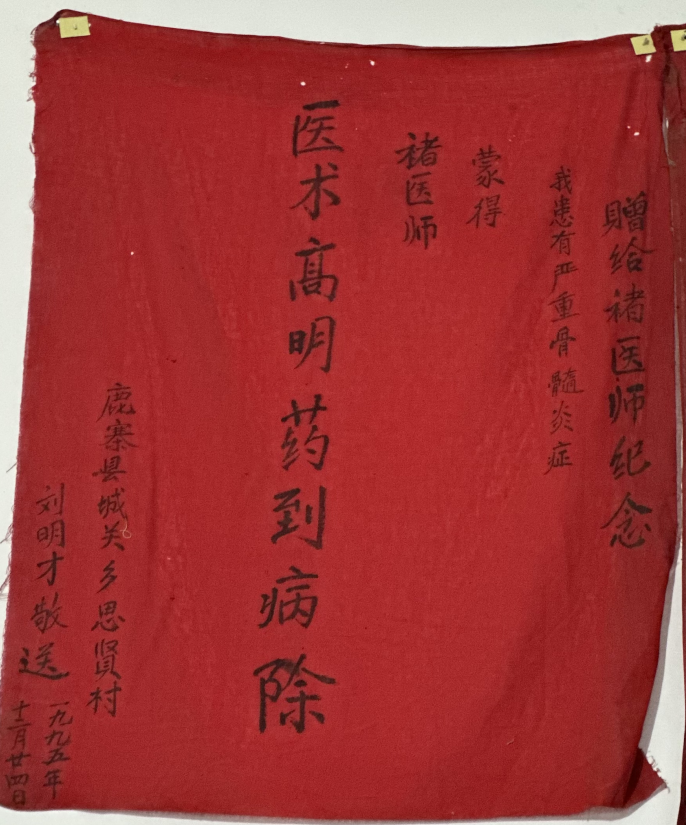 贈给褚医师纪念
我患有严重骨髓炎症
蒙得
褚医师
医术高明药到病除
鹿寨县城关乡思贤村
刘明才敬送
一九九五年
十二月廿四日